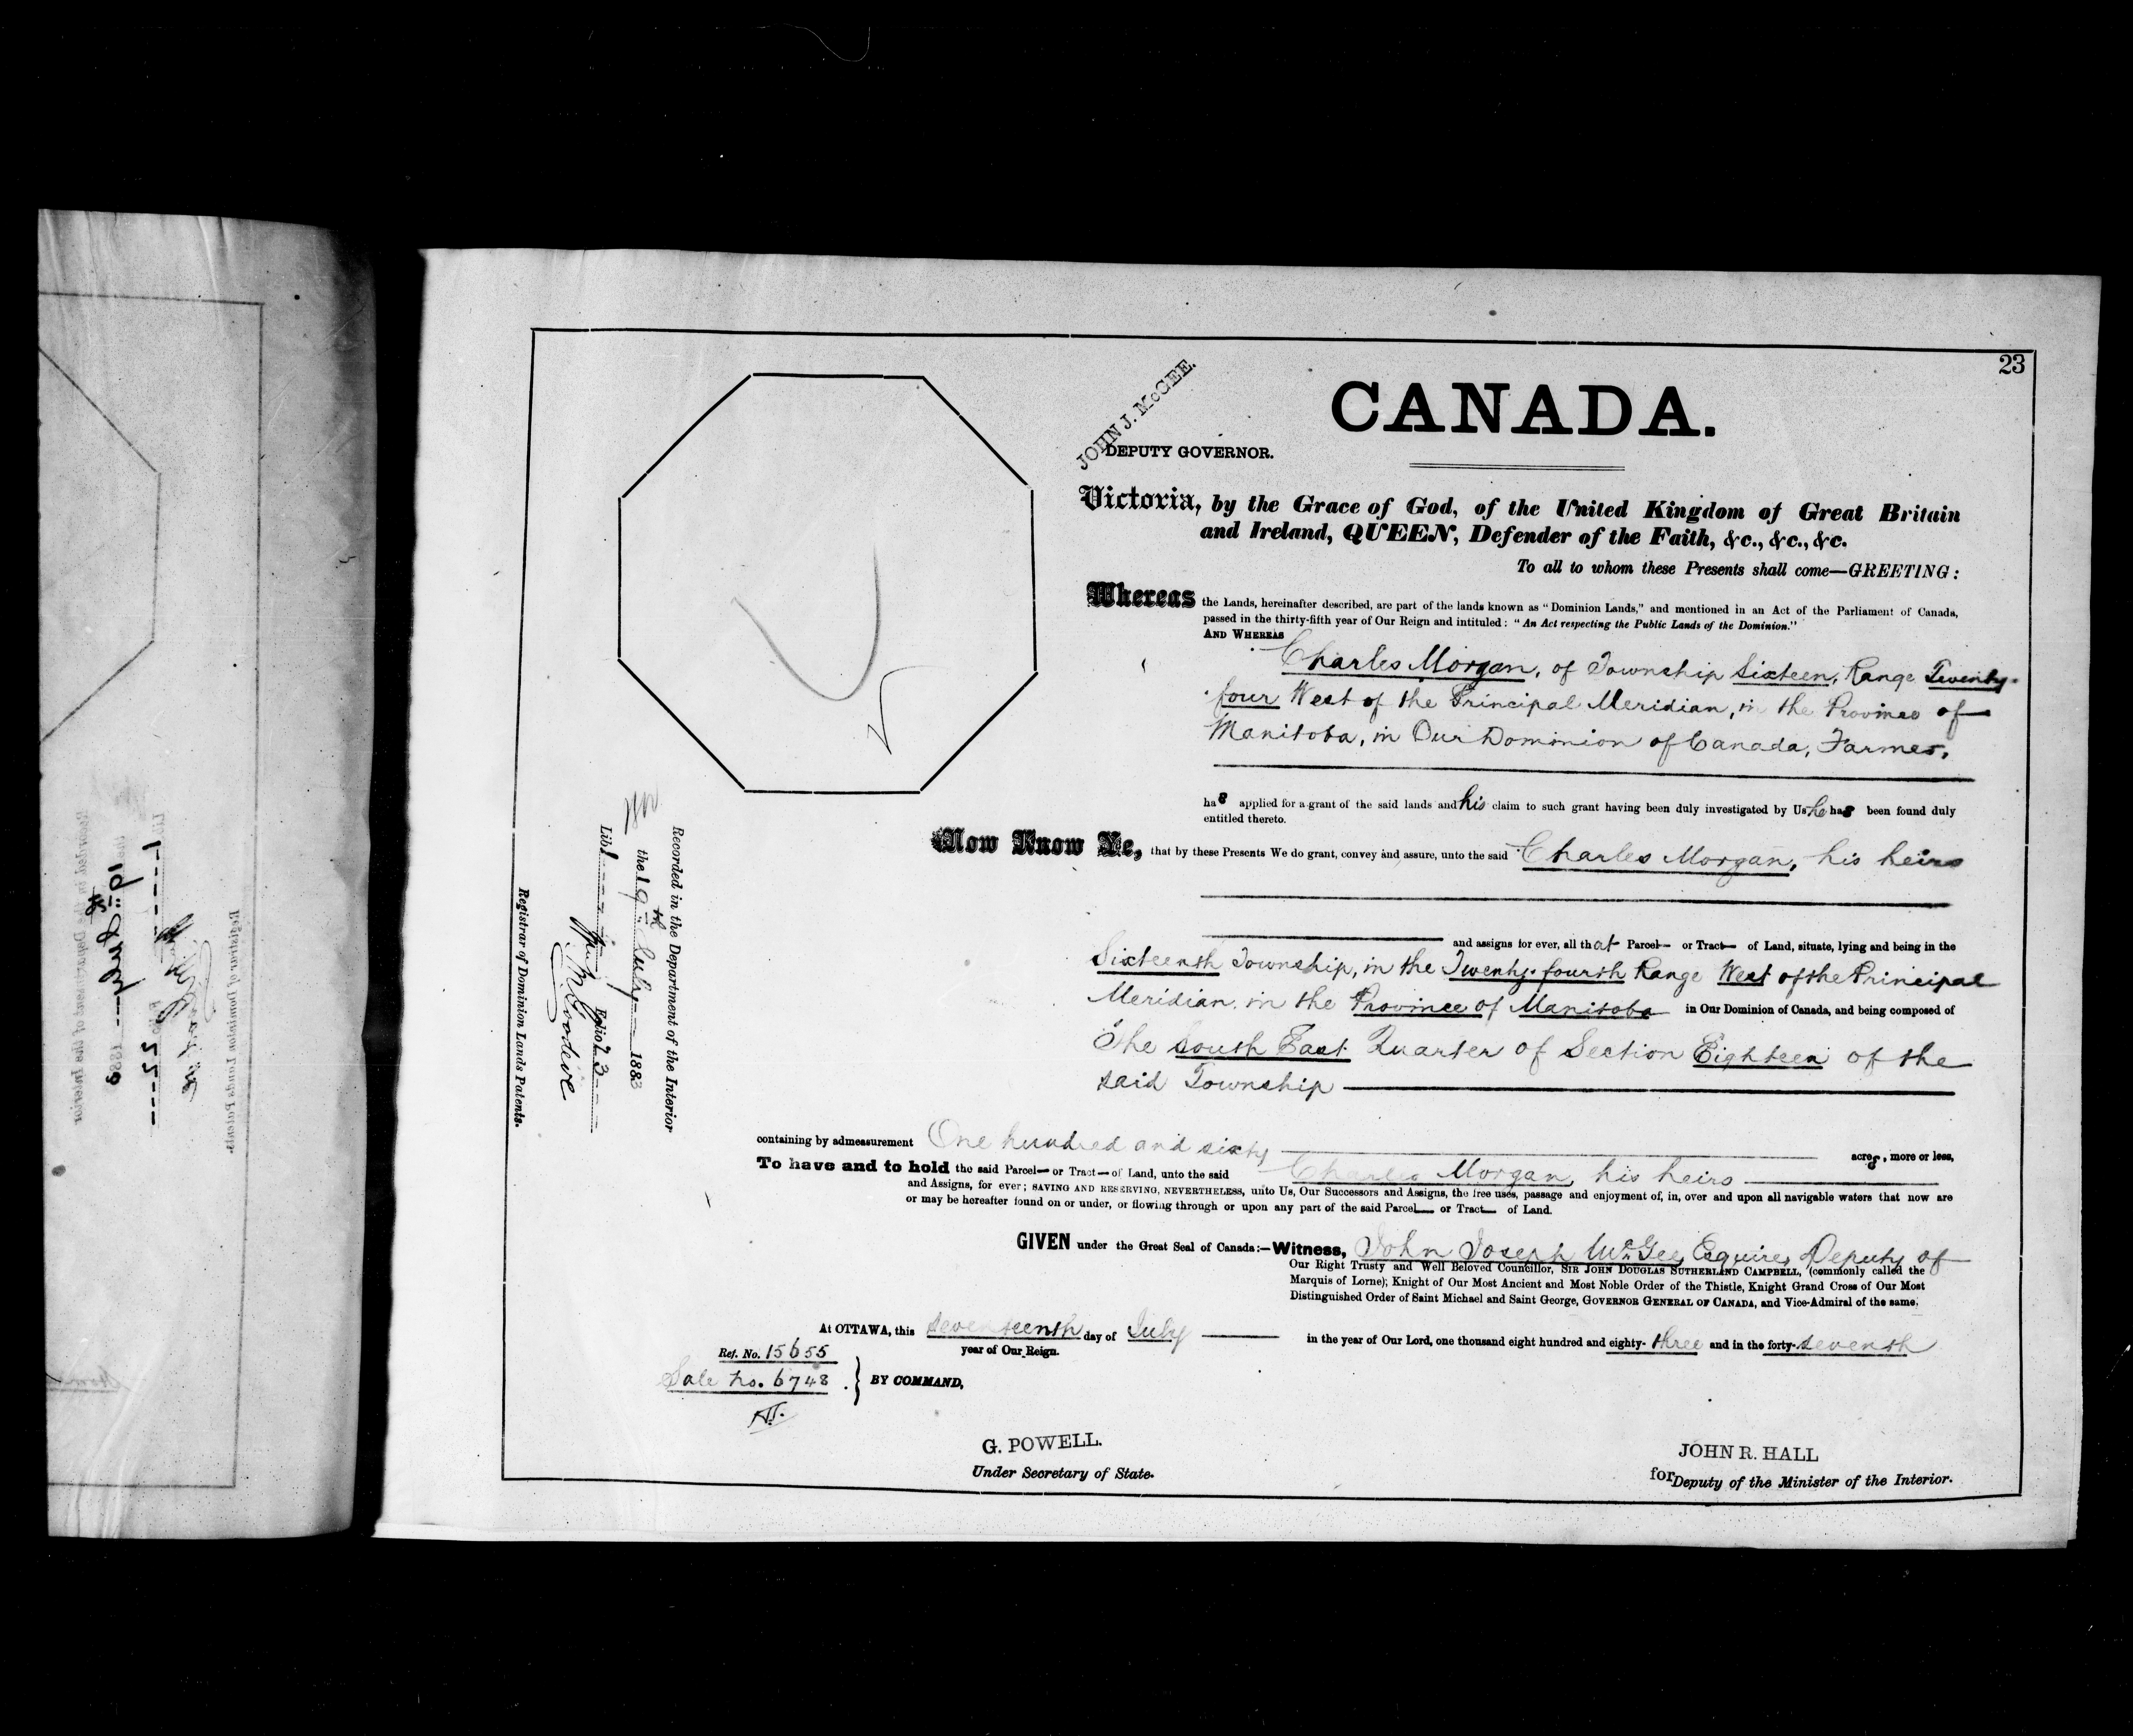 23
CANADA.
JOHN J. McGEE.
DEPUTY GOVERNOR.
Victoria, by the Grace of God, of the United Kingdom of Great Britain
and Ireland, QUEEN, Defender of the Faith, &c., &c., &c.
To all to whom these Presents shall come—GREETING:
Whereas the Lands, hereinafter described, are part of the lands known as "Dominion Lands," and mentioned in an Act of the Parliament of Canada,
passed in the thirty-fifth year of Our Reign and intituled: "An Act respecting the Public Lands of the Dominion."
AND WHEREAS
Charles Morgan, of Township Sixteen, Range Twenty-
four West of the Principal Meridian, in the Province of
Manitoba, in Our Dominion of Canada, Farmer,
has applied for a grant of the said lands and his claim to such grant having been duly investigated by Us he has been found duly
entitled thereto.
Now Know Ye, that by these Presents We do grant, convey and assure, unto the said Charles Morgan, his heirs
and assigns for ever, all that Parcel— or Tract— of Land, situate, lying and being in the
Sixteenth Township, in the Twenty-fourth Range West of the Principal
Meridian, in the Province of Manitoba in Our Dominion of Canada, and being composed of
The South East Quarter of Section Eighteen of the
said Township
containing by admeasurement One hundred and sixty acres, more or less,
To have and to hold the said Parcel— or Tract— of Land, unto the said Charles Morgan, his heirs
and Assigns, for ever; SAVING AND RESERVING, NEVERTHELESS, unto Us, Our Successors and Assigns, the free uses, passage and enjoyment of, in, over and upon all navigable waters that now are
or may be hereafter found on or under, or flowing through or upon any part of the said Parcel— or Tract— of Land.
GIVEN under the Great Seal of Canada:—Witness, John Joseph McGee, Esquire, Deputy of
Our Right Trusty and Well Beloved Councillor, SIR JOHN DOUGLAS SUTHERLAND CAMPBELL, (commonly called the
Marquis of Lorne); Knight of Our Most Ancient and Most Noble Order of the Thistle, Knight Grand Cross of Our Most
Distinguished Order of Saint Michael and Saint George, GOVERNOR GENERAL OF CANADA, and Vice-Admiral of the same.
At OTTAWA, this seventeenth day of July in the year of Our Lord, one thousand eight hundred and eighty-three and in the forty-seventh
year of Our Reign.
Ref. No. 15655
Sale No. 6748
BY COMMAND,
G. POWELL.
Under Secretary of State.
JOHN R. HALL
for Deputy of the Minister of the Interior.
Recorded in the Department of the Interior
the 19th July 1883
Lib. 1 Folio 23
Wm M Goodeve
Registrar of Dominion Lands Patents.